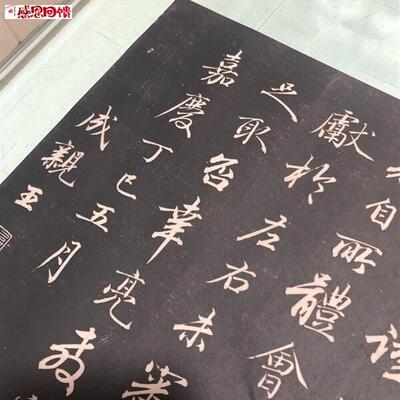 感恩回馈
自所體會
獻於左右未
取召辜亮
嘉慶丁巳五月
成親王